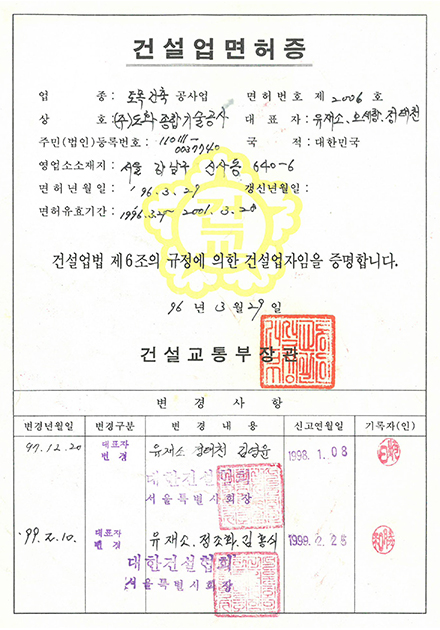 건설업면허증
업 종: 토목건축 공사업 면허번호 제 2006 호
상 호: (주)도화종합기술공사 대 표 자: 유재소, 오세항, 정해천
주민(법인)등록번호: 110111-0037740 국 적: 대한민국
영업소소재지: 서울 강남구 신사동 640-6
면허년월일: '96. 3. 29 갱신년월일:
면허유효기간: 1996. 3. 29 ~ 2001. 3. 28
건설업법 제6조의 규정에 의한 건설업자임을 증명합니다.
96 년 03 월 29 일
건설교통부장관
변 경 사 항
변경년월일 변경구분 변 경 내 용 신고연월일 기록자(인)
97. 12. 20 대표자 변경 유재소 김영윤 1998. 1. 08
대한건설협회
서울특별시회장
'99. 2. 10. 대표자 변경 유재소, 정조화, 김홍식 1999. 2. 25
대한건설협회
서울특별시회장